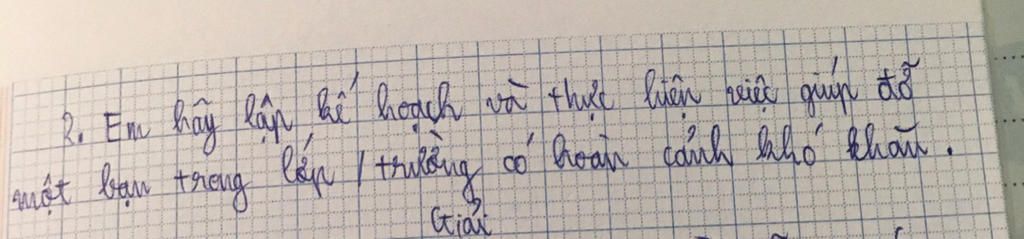 2. Em hãy lập kế hoạch và thực hiện việc giúp đỡ
một bạn trong lớp / trường có hoàn cảnh khó khăn.
Giải